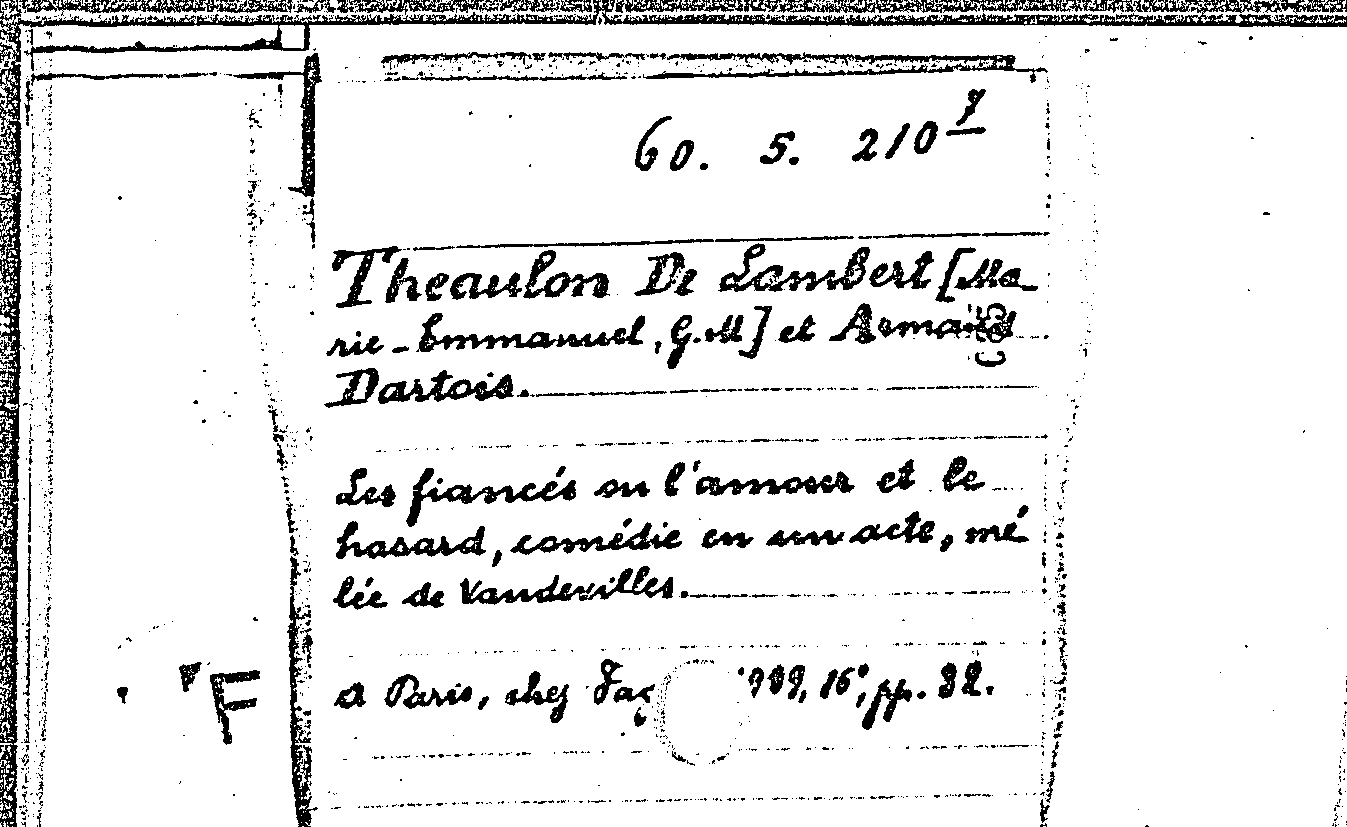 60. 5. 210 7
Theaulon De Lambert [Ma-
rie-Emmanuel, G.M] et Armand
Dartois.
Les fiancés ou l'amour et le
hasard, comédie en un acte, mê
lée de Vaudevilles.
a Paris, chez 16°, pp. 32.
F